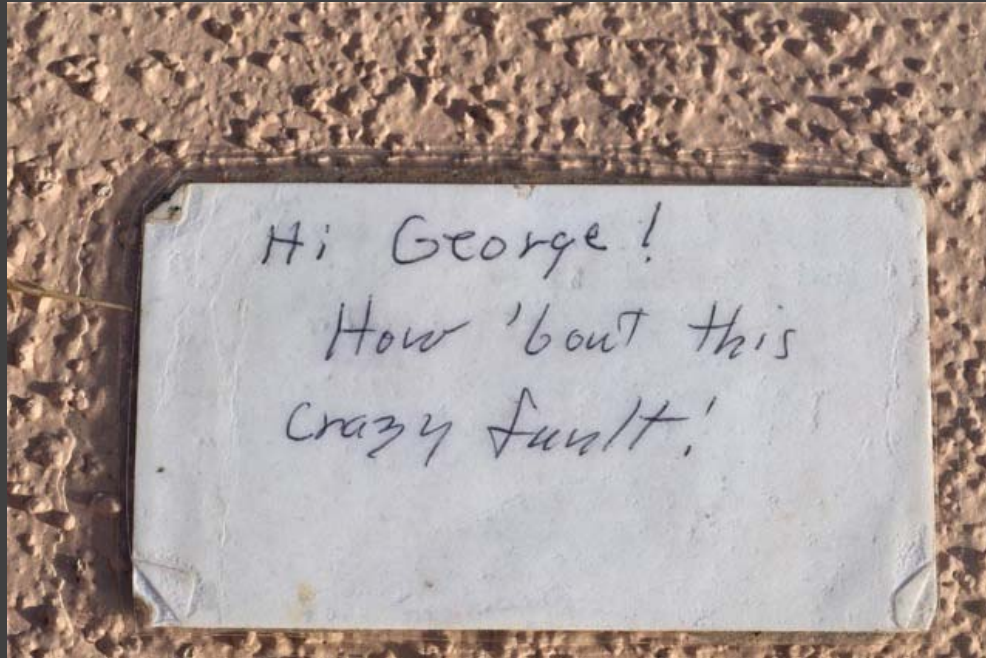 Hi George!
How 'bout this
crazy fault!